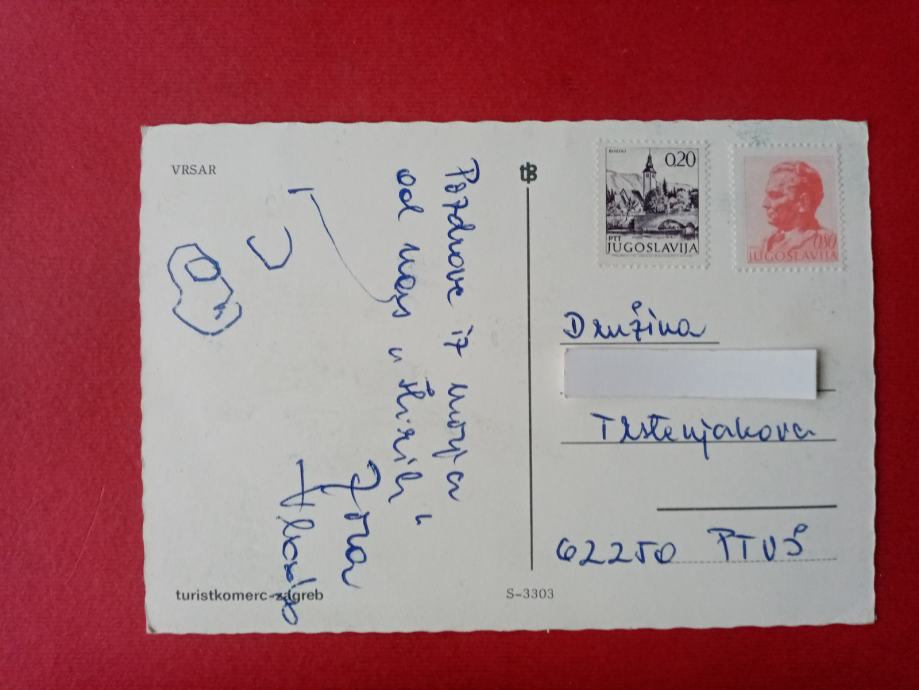 VRSAR
Pozdrave iz morja
od nas "štirih"
Zora
turistkomerc-zagreb
S-3303
BOHINJ
0,20
PTT
JUGOSLAVIJA
0,80
JUGOSLAVIJA
Družina
Trstenjakova
62250 PTUJ